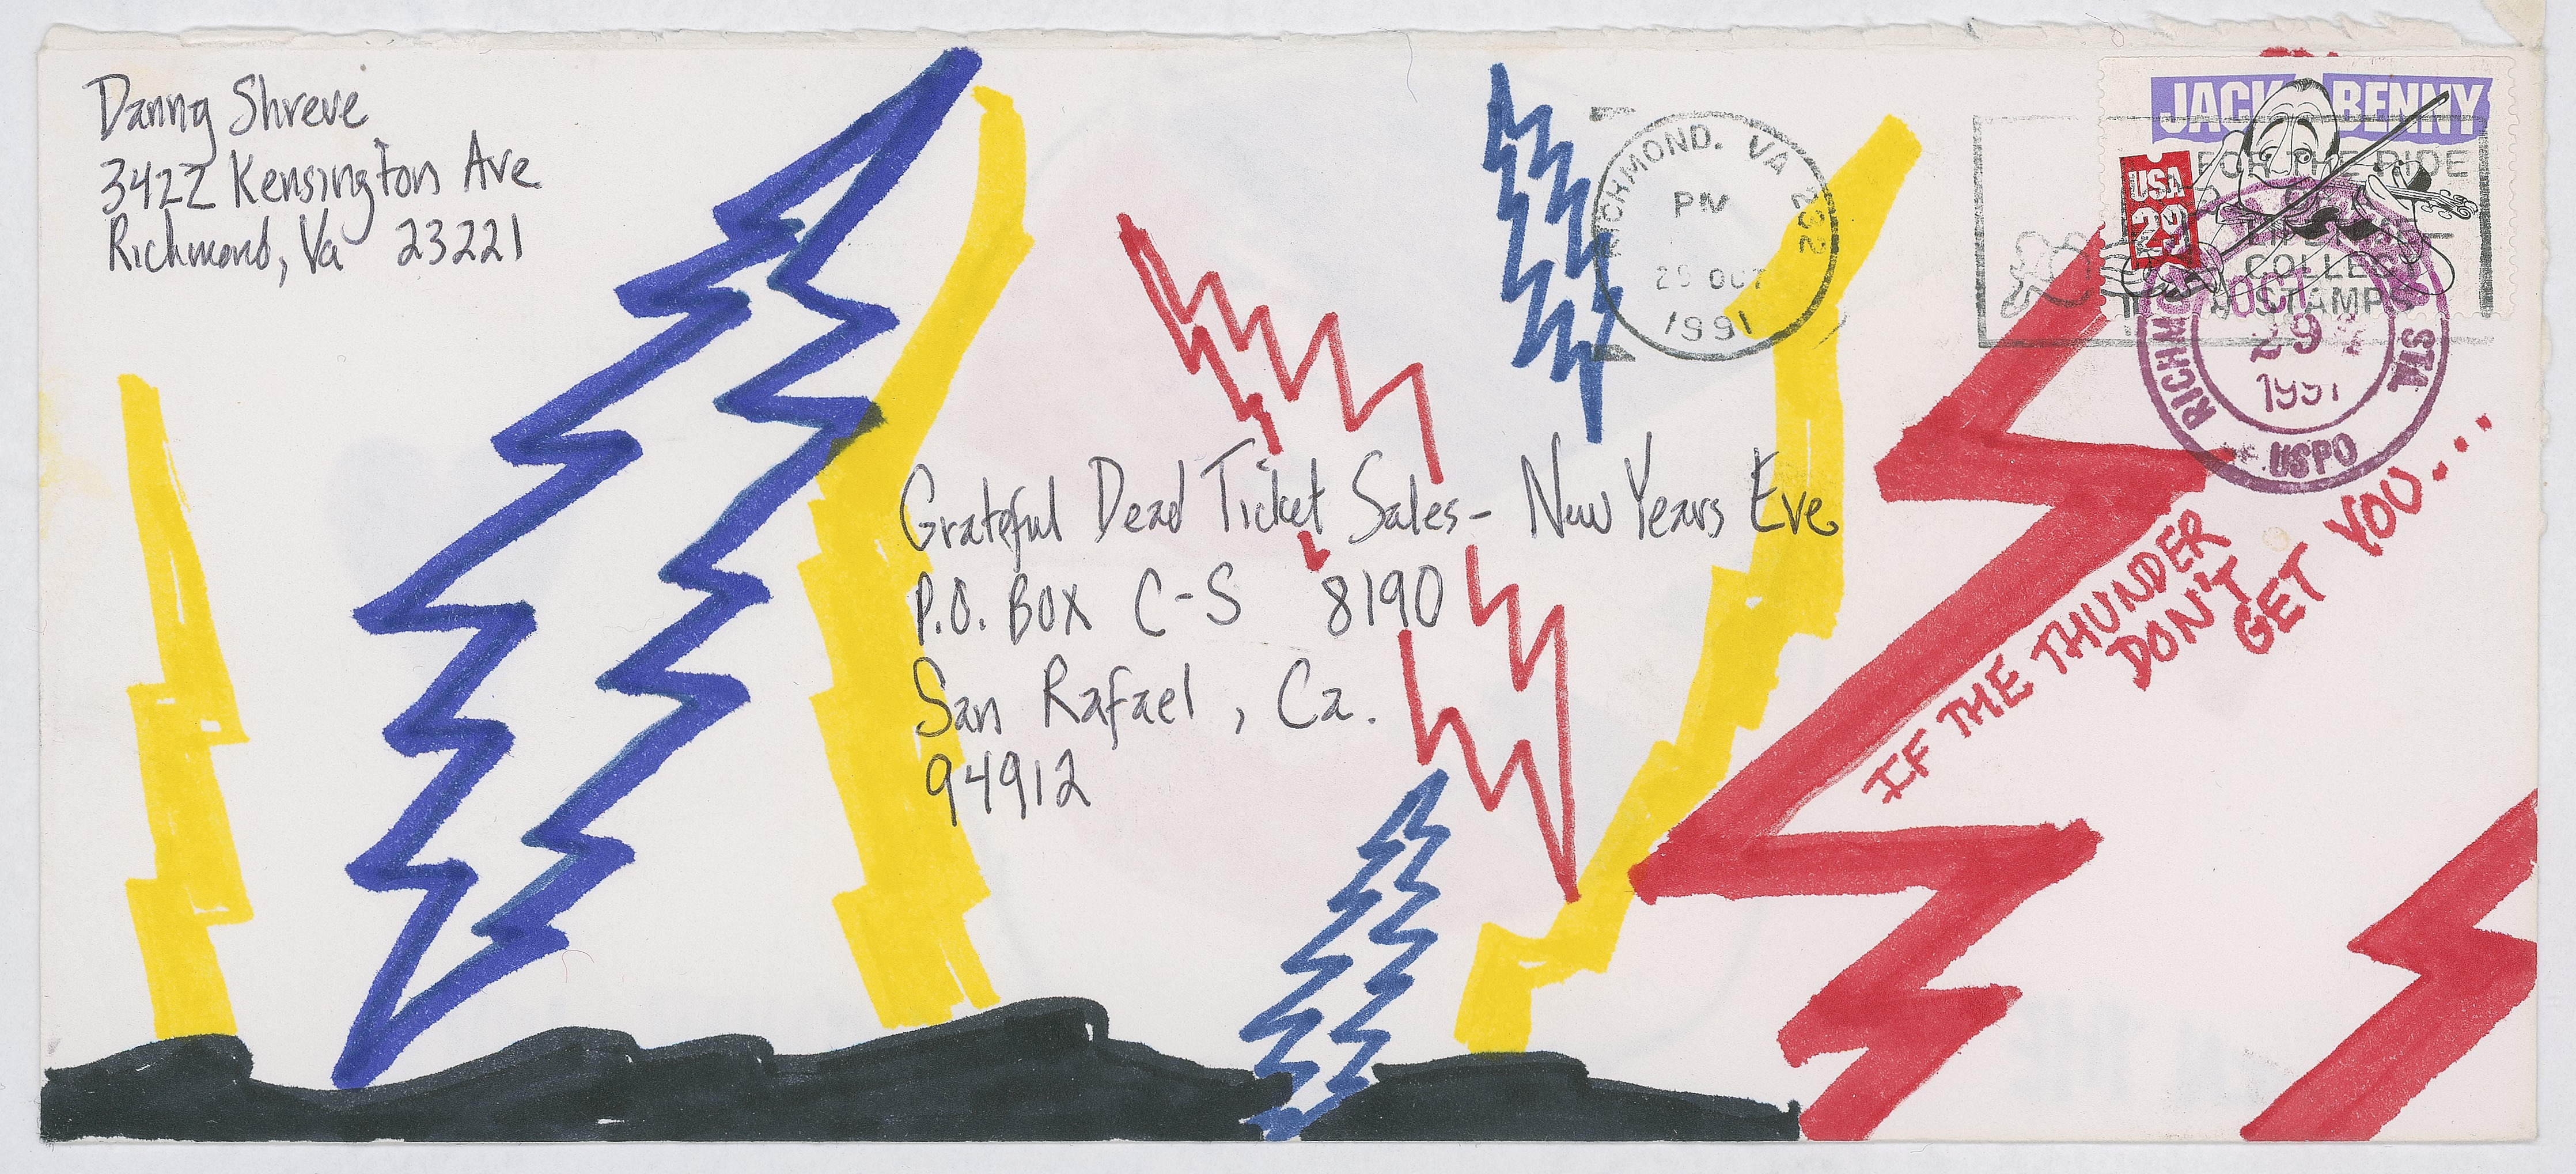 Danny Shreve
3422 Kensington Ave
Richmond, Va 23221
RICHMOND. VA 232
PM
29 OCT
1991
JACK BENNY
USA
29
FOR THE RIDE
COLLECT
STAMPS
OCT
29
1991
RICHMO
STA
USPO
Grateful Dead Ticket Sales - New Years Eve
P.O. BOX C-S 8190
San Rafael, Ca.
94912
IF THE THUNDER
DON'T
GET YOU...